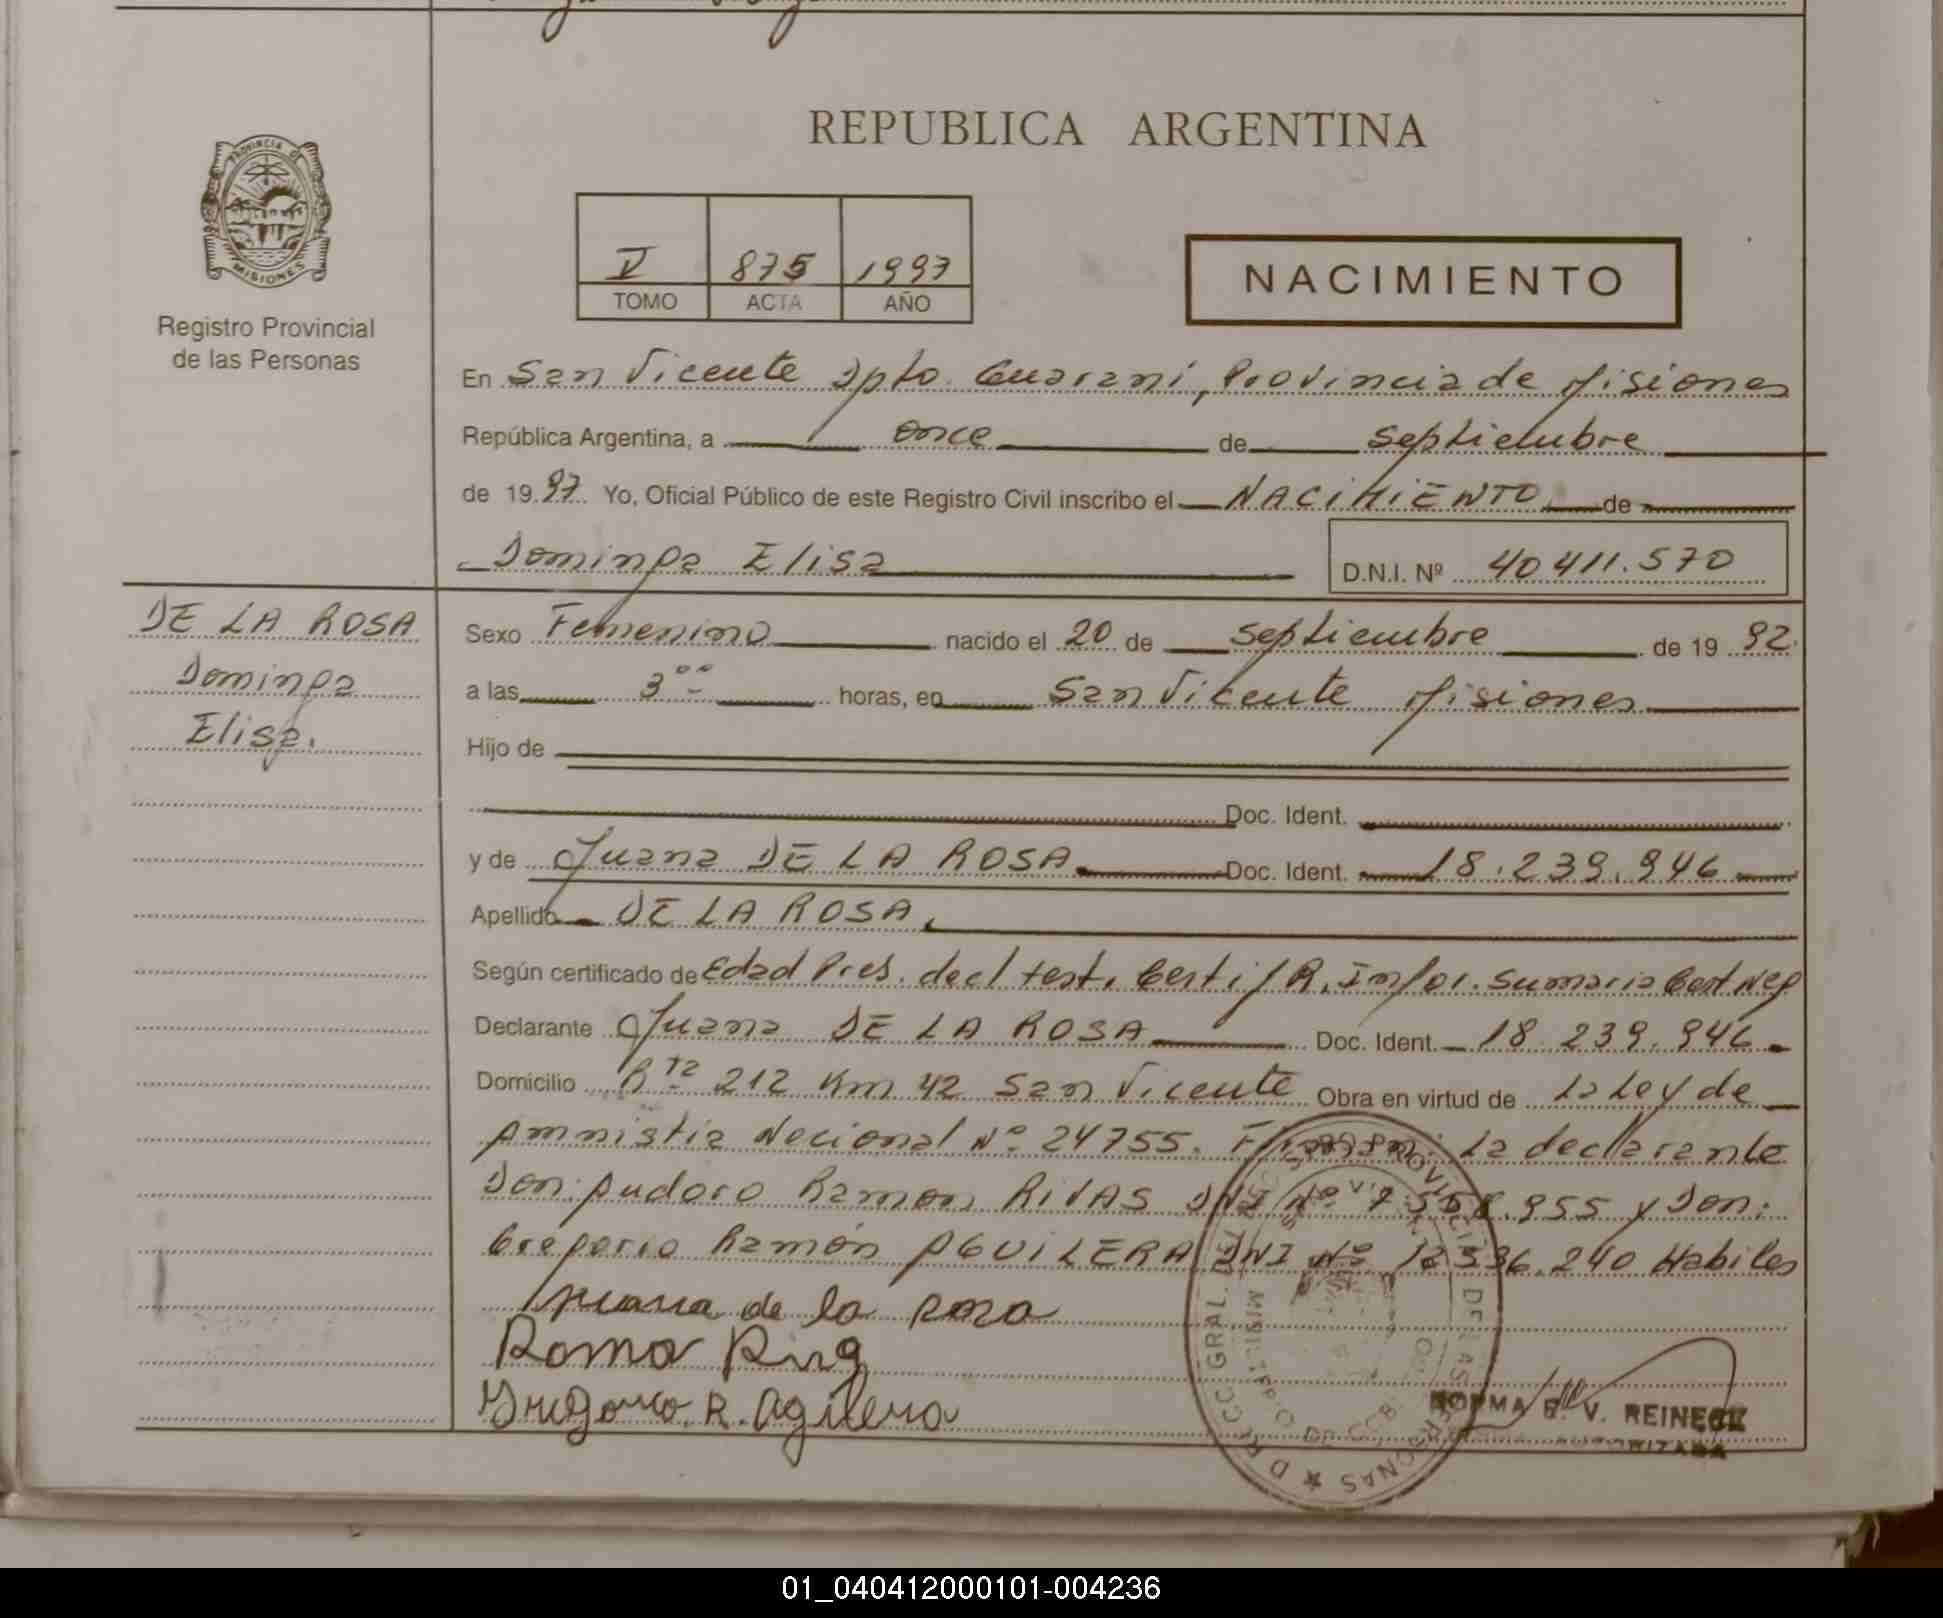 REPUBLICA ARGENTINA
PROVINCIA DE
MISIONES
Registro Provincial
de las Personas
V 875 1997
TOMO ACTA AÑO
NACIMIENTO
En San Vicente Dpto. Guaraní, Provincia de Misiones
República Argentina, a once de Septiembre
de 19 97 Yo, Oficial Público de este Registro Civil inscribo el NACIMIENTO de
Dominga Elisa D.N.I. Nº 40411.570
DE LA ROSA
Dominga
Elisa.
Sexo Femenino nacido el 20 de Septiembre de 19 92.
a las 3 00 horas, en San Vicente Misiones
Hijo de
Doc. Ident.
y de Juana DE LA ROSA. Doc. Ident. 18.239.946
Apellido DE LA ROSA.
Según certificado de Edad Pres. decl test. Certif R. Infor. Sumaria Cert Neg
Declarante Juana DE LA ROSA Doc. Ident. 18.239.946.
Domicilio Rta 212 Km 42 San Vicente Obra en virtud de la Ley de
Amnistia Nacional Nº 24755. Firman: La declarante
Don: Audoro Ramon RIVAS DNI Nº 7.558.955 y Don:
Gregorio Ramón AGUILERA DNI Nº 12.536.240 Habiles
Juana de la Rosa
Gregorio. R. Agilera
NORMA B. V. REINECK
AUTORIZADA
01_040412000101-004236